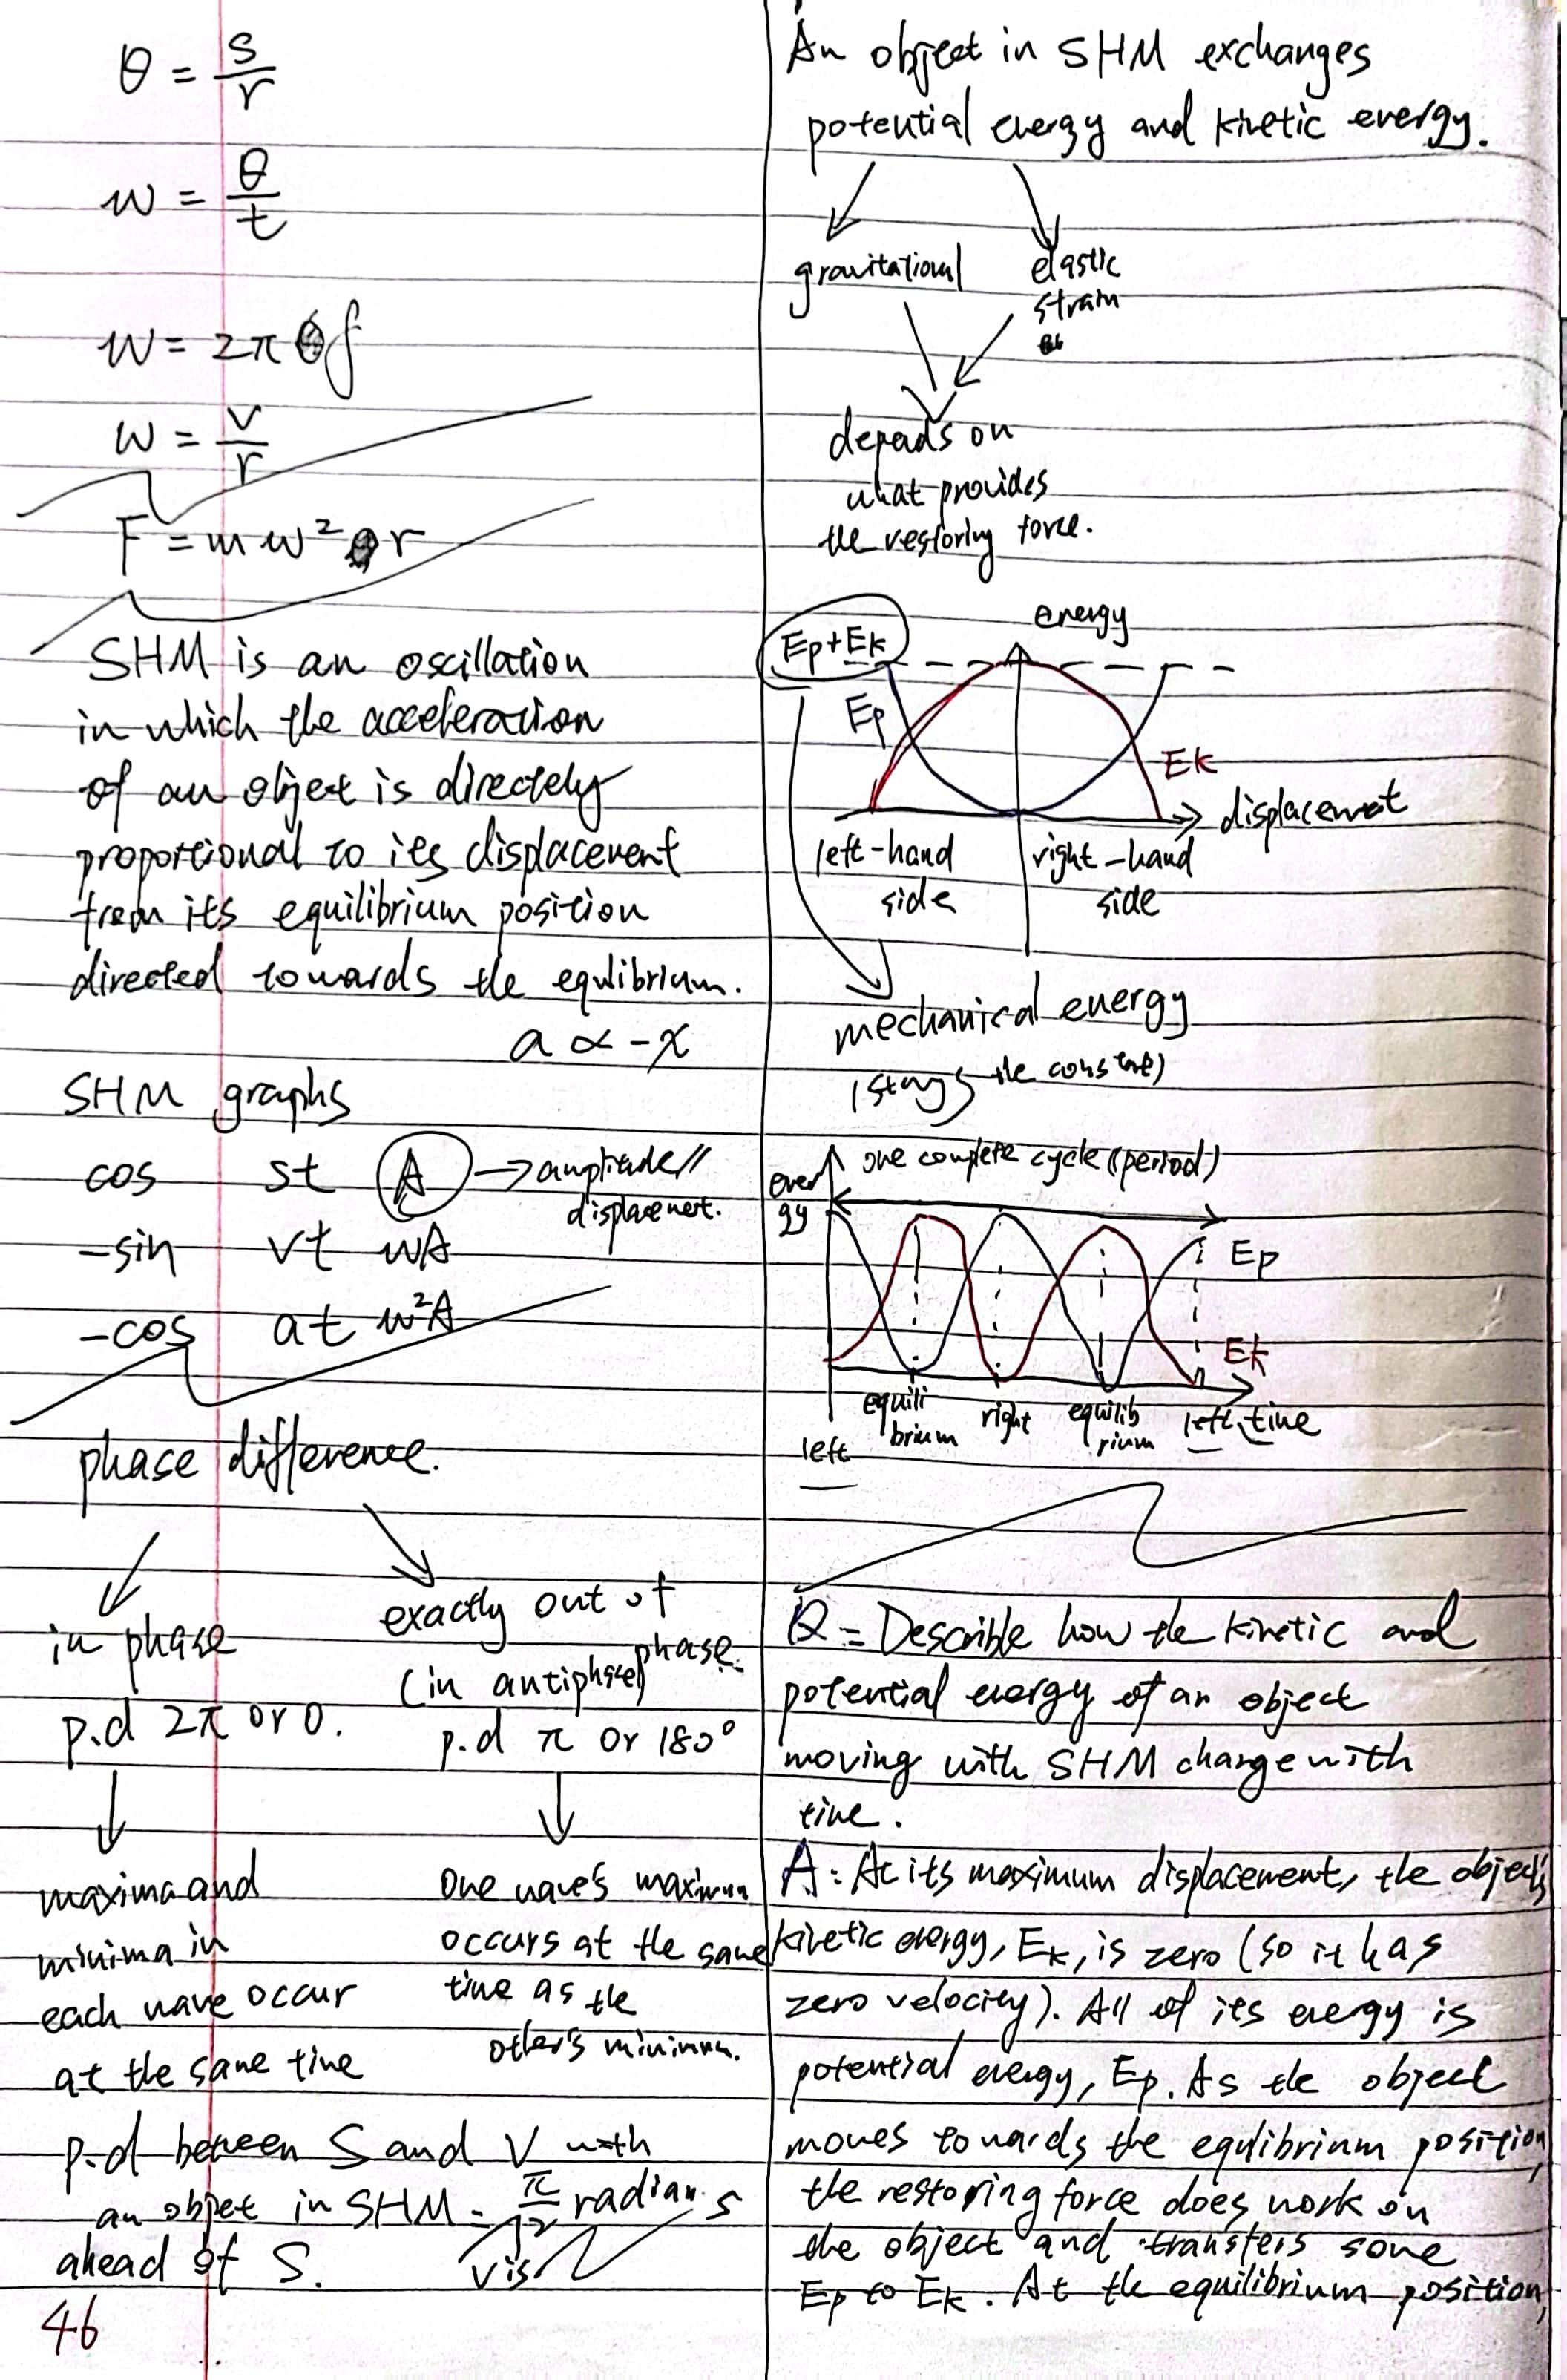 θ = s/r
w = θ/t
w = 2π f
w = v/r
F = m w² r
SHM is an oscillation
in which the acceleration
of an object is directely
proportional to its displacement
from its equilibrium position
directed towards the equlibrium.
a ∝ -x
SHM graphs
cos st A → amplitude//
displacement.
-sin vt wA
-cos at w²A
phase difference.
in phase
p.d 2π or 0.
maxima and
minima in
each wave occur
at the same time
exactly out of
phase.
(in antiphase)
p.d π or 180°
one wave's maximum
occurs at the same
time as the
other's minimum.
p.d between S and V with
an object in SHM = π/2 radians
v is
ahead of S.
46
An object in SHM exchanges
potential energy and kinetic energy.
gravitational
elastic
strain
depends on
what provides
the restoring force.
Ep+Ek
energy
Ep
Ek
displacement
left-hand
side
right-hand
side
mechanical energy
(stays the constant)
one complete cycle (period)
ener
gy
Ep
Ek
left
equili
brium
right
equilib
rium
left time
Q = Describle how the kinetic and
potential energy of an object
moving with SHM change with
time.
A: At its maximum displacement, the object's
kinetic energy, Ek, is zero (so it has
zero velocity). All of its energy is
potential energy, Ep. As the object
moves towards the equlibrium position,
the restoring force does work on
the object and transfers some
Ep to Ek. At the equilibrium position,